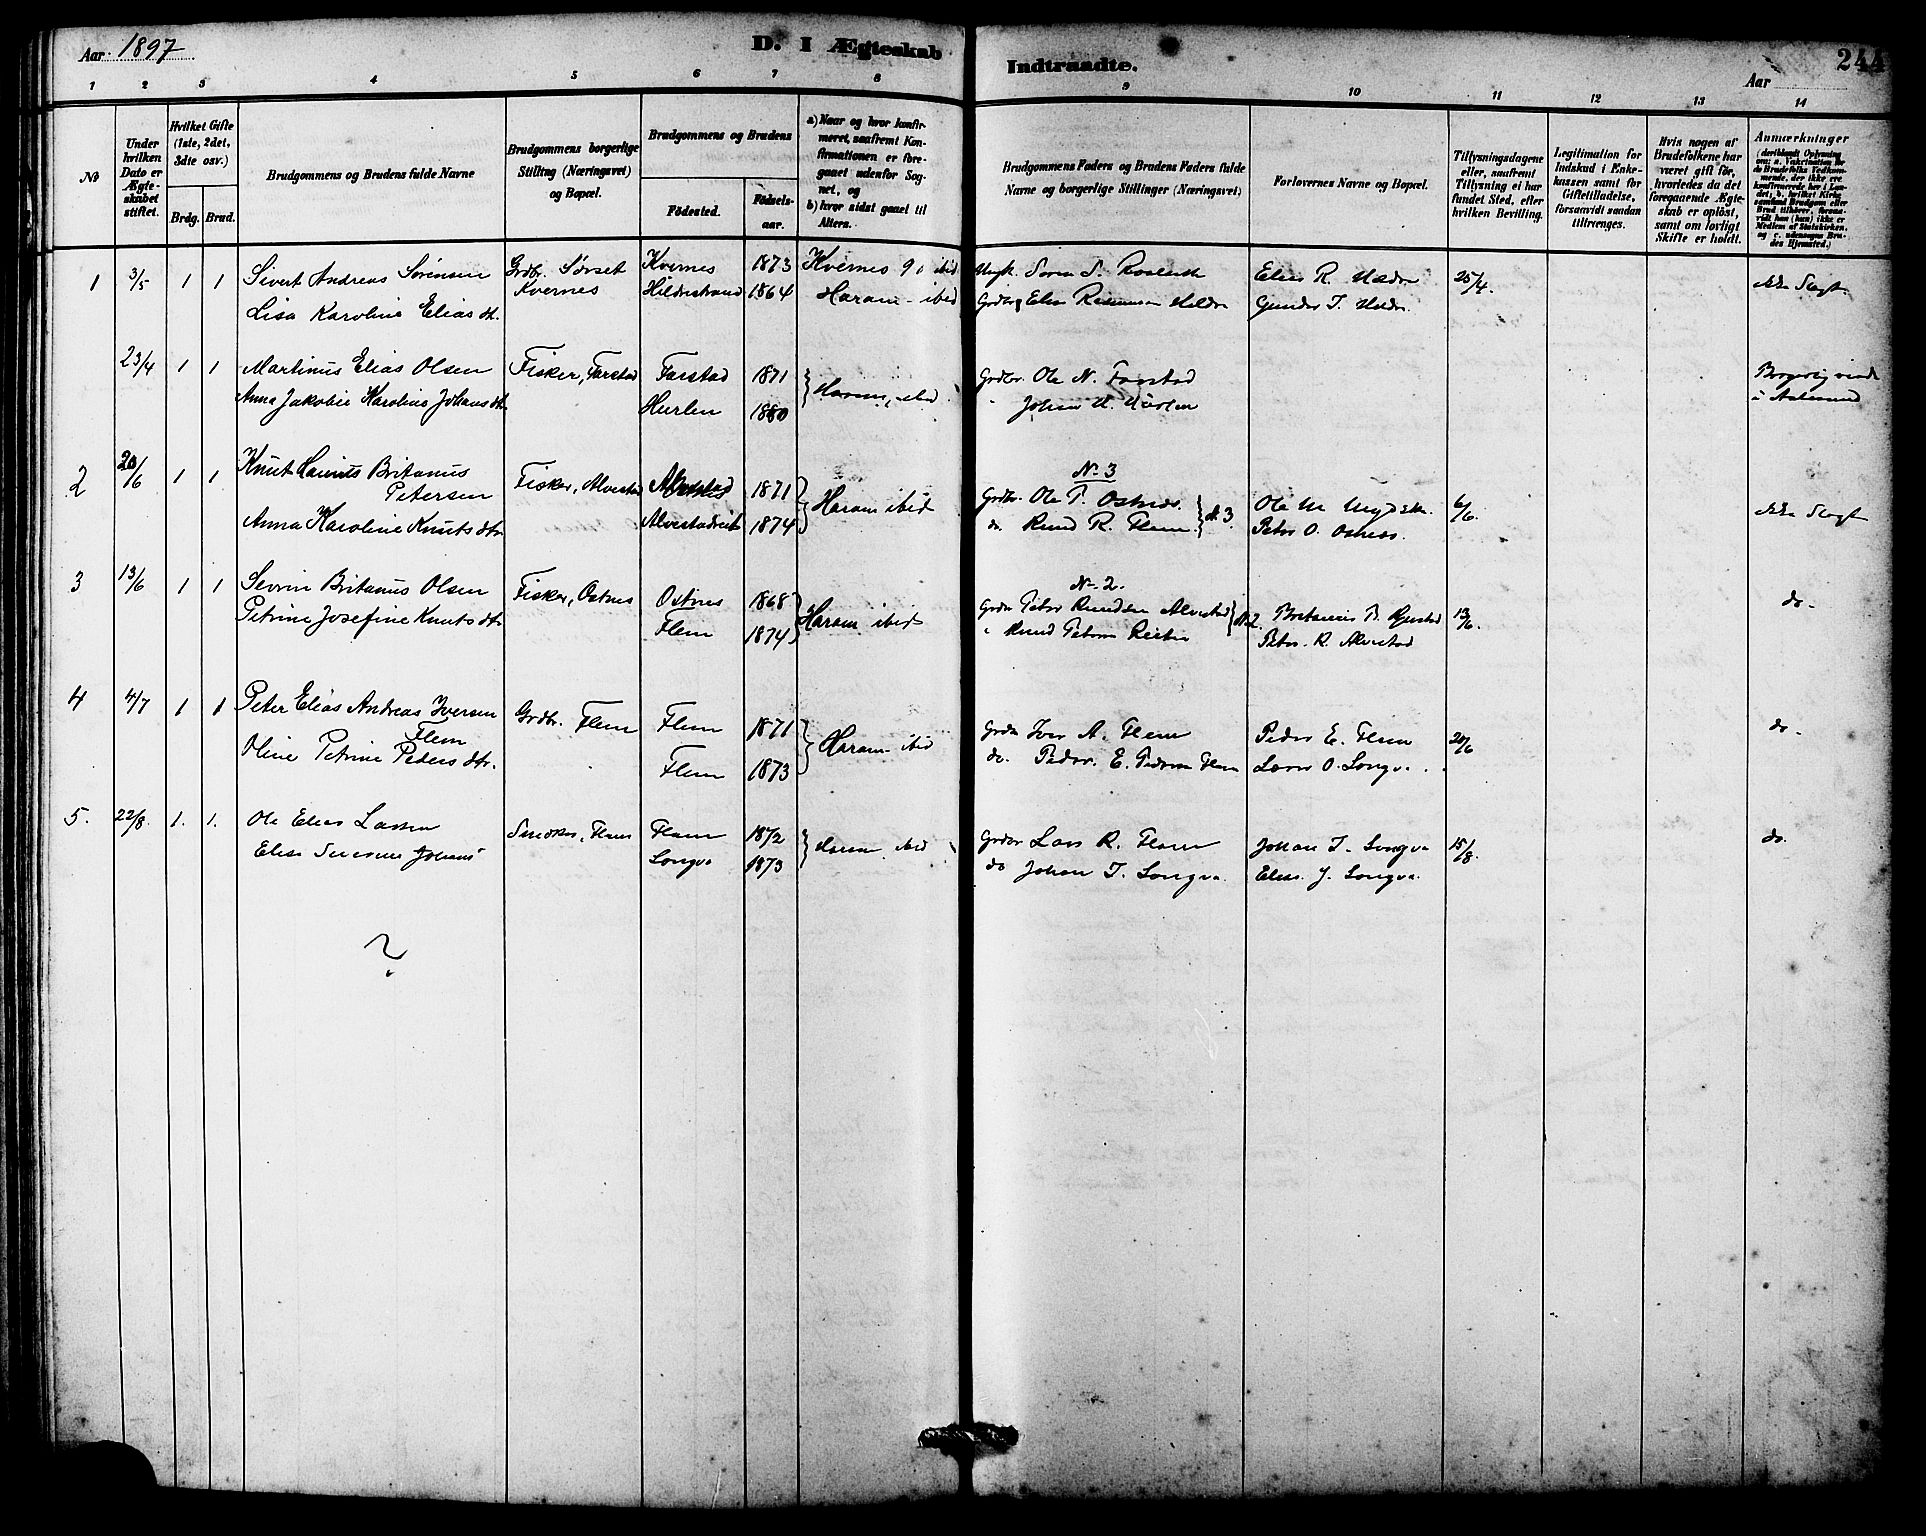 Aar 1897
D. I Ægteskab
Indtraadte.
Aar
244
1 2 3 4 5 6 7 8 9 10 11 12 13 14
No
Under hvilken Dato er Ægteskabet stiftet.
Hvilket Gifte (1ste, 2det, 3die osv.)
Brdg. Brud.
Brudgommens og Brudens fulde Navne
Brudgommens borgerlige Stilling (Næringsvei) og Bopæl.
Brudgommens og Brudens
Fødested.
Fødselsaar.
a) Naar og hvor konfirmeret, saafremt Konfirmationen er foregaaet udenfor Sognet, og
b) hvor sidst gaaet til Alters.
Brudgommens Faders og Brudens Faders fulde Navne og borgerlige Stillinger (Næringsvei)
Forlovernes Navne og Bopæl.
Tillysningsdagene eller, saafremt Tillysning ei har fundet Sted, efter hvilken Bevilling.
Legitimation for Indskud i Enkekassen samt for Giftetilladelse, forsaavidt saadan tiltrænges.
Hvis nogen af Brudefolkene har været gift før, hvorledes da det foregaaende Ægteskab er opløst, samt om lovligt Skifte er holdt.
Anmærkninger
1 3/5 1 1 Sivert Andreas Sørensen Grdbr. Sørset Kvernes 1873 Kvernes 90 ibid Elias R. 25/4. ikke Slægt
Lisa Karoline Elias dt. Kvernes Hildrestrand 1864 Haram - ibid Elias Rasmussen Hildre Gunder J. Hildre
23/4 1 1 Martinus Elias Olsen Fisker, Farstad Farstad 1871 Haram, ibid. Grdbr. Ole N. Farstad Borgerlig viede
Anna Jakobie Karoline Johans dt. Hurlen 1880 Johan i Aalesund
2 20/6 1 1 Knut Petersen Fisker, Alvestad Alvestad 1871 Haram ibid No 3 Grdbr. Ole P. Ostnes. Ole M. 6/6. ikke Slægt
Anna Karoline Knuts dtr. 1874 do. Knud R. Flem. No 3 Peter O. Ostnes.
3 13/6 1 1 Severin Britanus Olsen Fisker, Ostnes Ostnes 1868 Haram ibid No 2. Grdbr Peter Knudsen Alvestad No 2. Britanus B. 13/6. do.
Petrine Josefine Knuts dtr. Flem 1874 Knud Peter. R. Alvestad
4 4/7 1 1 Peter Elias Andreas Iversen Flem Grdbr. Flem Flem 1871 Haram ibid Grdbr Iver A. Flem Peder E. Flem 20/6 do.
Oline Petrine Peders dtr. Flem 1873 do. Peder. E. Pedersen Flem Lars O. Longva.
5. 22/8. 1. 1. Ole Elias Larsen Flem 1872 Haram ibid Grdbr Lars R. Flem Johan J. Longva 15/8. do.
Johans Longva 1873 do Johan J. Longva. Elias J. Longva.
?